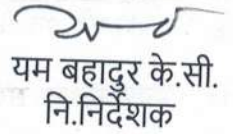 यम बहादुर के.सी.
नि.निर्देशक